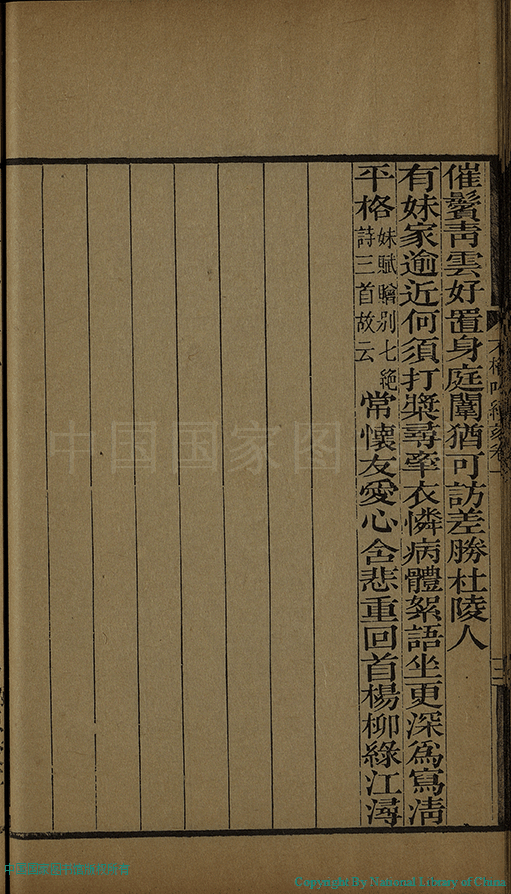 催鬢青雲好置身庭闈猶可訪差勝杜陵人
有妹家逾近何須打槳尋牽衣憐病體絮語坐更深為寫清
平格
妹賦別七絕
詩三首故云
常懷友愛心含悲重回首楊柳綠江潯
三
中国国家图
Copyright By National Library of China